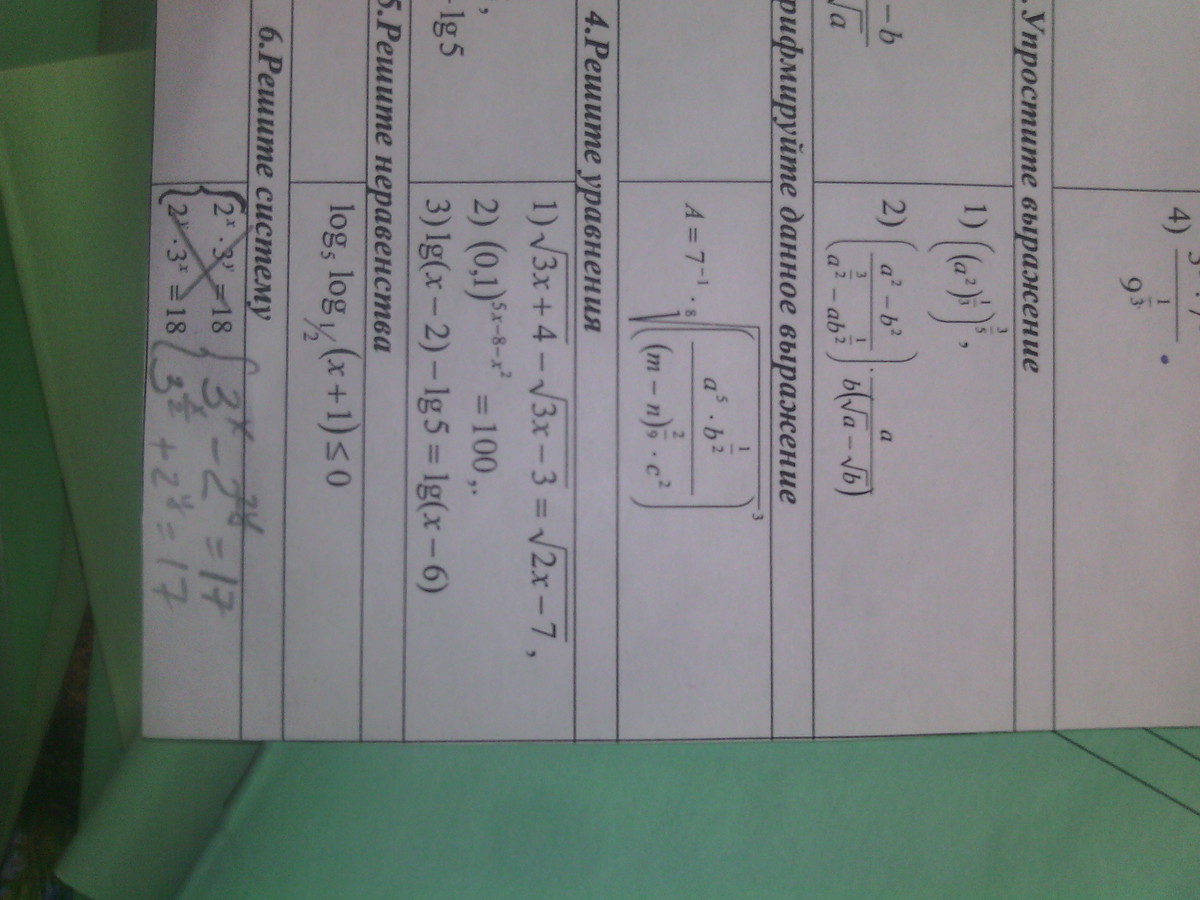 4) 3 · 7 / 9^(1/3)
.Упростите выражение
1) ((a²)^(1/3))^(3/5) ,
– b
√a
2) ((a² – b²) / (a^(3/2) – ab^(1/2))) · a / b(√a – √b)
рифмируйте данное выражение
A = 7⁻¹ · ⁸√(a⁵ · b^(1/2) / (m – n)^(2/9) · c²)⁻³
4.Решите уравнения
1) √3x + 4 – √3x – 3 = √2x – 7 ,
,
2) (0,1)^(5x–8–x²) = 100,.
lg 5
3) lg(x – 2) – lg 5 = lg(x – 6)
5.Решите неравенства
log₅ log_½ (x + 1) ≤ 0
6.Решите систему
{ 2^x · 3^y = 18 { 3^x – 2^2y = 17
{ 2^y · 3^x = 18 { 3^(x/2) + 2^y = 17